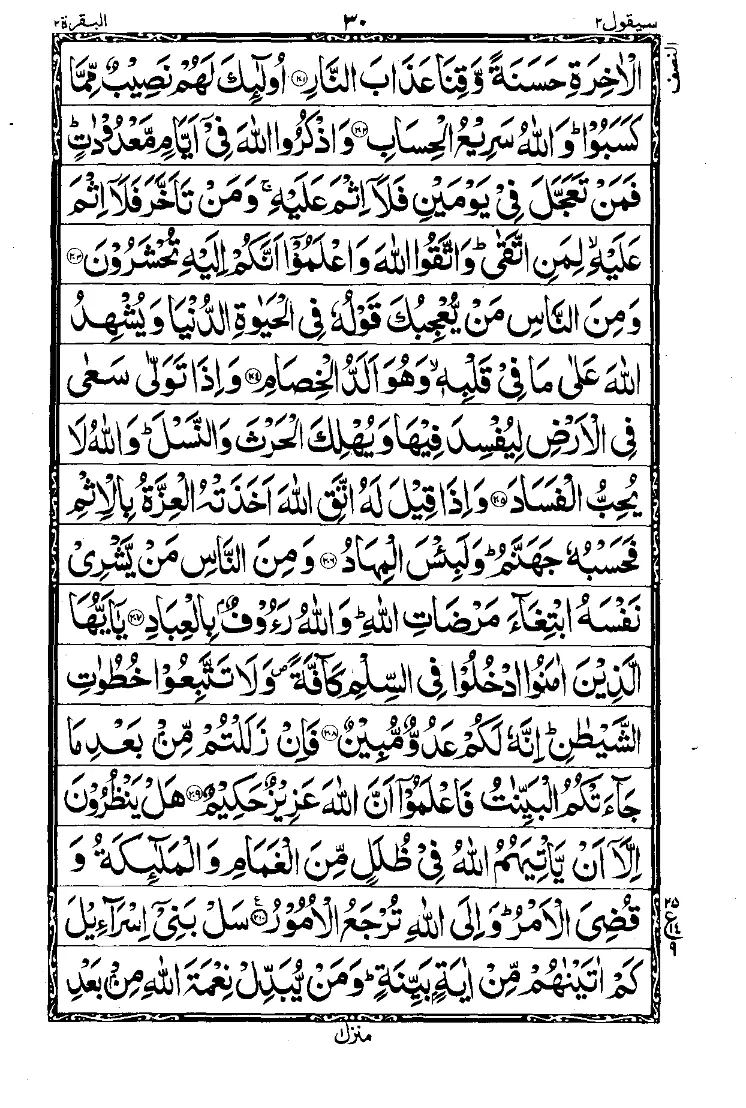 سيقول ٢ ٣٠ البقرة ٢
النصف
الْاٰخِرَةِ حَسَنَةً وَّقِنَا عَذَابَ النَّارِ ﴿٢٠١﴾ اُولٰٓئِكَ لَهُمْ نَصِيْبٌ مِّمَّا
كَسَبُوْا ؕ وَاللّٰهُ سَرِيْعُ الْحِسَابِ ﴿٢٠٢﴾ وَاذْكُرُوا اللّٰهَ فِيْٓ اَيَّامٍ مَّعْدُوْدٰتٍ ؕ
فَمَنْ تَعَجَّلَ فِيْ يَوْمَيْنِ فَلَآ اِثْمَ عَلَيْهِ ۚ وَمَنْ تَاَخَّرَ فَلَآ اِثْمَ
عَلَيْهِ ۙ لِمَنِ اتَّقٰى ؕ وَاتَّقُوا اللّٰهَ وَاعْلَمُوْٓا اَنَّكُمْ اِلَيْهِ تُحْشَرُوْنَ ﴿٢٠٣﴾
وَمِنَ النَّاسِ مَنْ يُّعْجِبُكَ قَوْلُهٗ فِي الْحَيٰوةِ الدُّنْيَا وَيُشْهِدُ
اللّٰهَ عَلٰى مَا فِيْ قَلْبِهٖ ۙ وَهُوَ اَلَدُّ الْخِصَامِ ﴿٢٠٤﴾ وَاِذَا تَوَلّٰى سَعٰى
فِي الْاَرْضِ لِيُفْسِدَ فِيْهَا وَيُهْلِكَ الْحَرْثَ وَالنَّسْلَ ؕ وَاللّٰهُ لَا
يُحِبُّ الْفَسَادَ ﴿٢٠٥﴾ وَاِذَا قِيْلَ لَهُ اتَّقِ اللّٰهَ اَخَذَتْهُ الْعِزَّةُ بِالْاِثْمِ
فَحَسْبُهٗ جَهَنَّمُ ؕ وَلَبِئْسَ الْمِهَادُ ﴿٢٠٦﴾ وَمِنَ النَّاسِ مَنْ يَّشْرِيْ
نَفْسَهُ ابْتِغَآءَ مَرْضَاتِ اللّٰهِ ؕ وَاللّٰهُ رَءُوْفٌۢ بِالْعِبَادِ ﴿٢٠٧﴾ يٰٓاَيُّهَا
الَّذِيْنَ اٰمَنُوا ادْخُلُوْا فِي السِّلْمِ كَآفَّةً ۪ وَلَا تَتَّبِعُوْا خُطُوٰتِ
الشَّيْطٰنِ ؕ اِنَّهٗ لَكُمْ عَدُوٌّ مُّبِيْنٌ ﴿٢٠٨﴾ فَاِنْ زَلَلْتُمْ مِّنْۢ بَعْدِ مَا
جَآءَتْكُمُ الْبَيِّنٰتُ فَاعْلَمُوْٓا اَنَّ اللّٰهَ عَزِيْزٌ حَكِيْمٌ ﴿٢٠٩﴾ هَلْ يَنْظُرُوْنَ
اِلَّآ اَنْ يَّاْتِيَهُمُ اللّٰهُ فِيْ ظُلَلٍ مِّنَ الْغَمَامِ وَالْمَلٰٓئِكَةُ وَ
قُضِيَ الْاَمْرُ ؕ وَاِلَى اللّٰهِ تُرْجَعُ الْاُمُوْرُ ﴿٢١٠﴾ سَلْ بَنِيْٓ اِسْرَآءِيْلَ
٢٥ ع ١٤ ٩
كَمْ اٰتَيْنٰهُمْ مِّنْ اٰيَةٍۭ بَيِّنَةٍ ؕ وَمَنْ يُّبَدِّلْ نِعْمَةَ اللّٰهِ مِنْۢ بَعْدِ
منزل ١